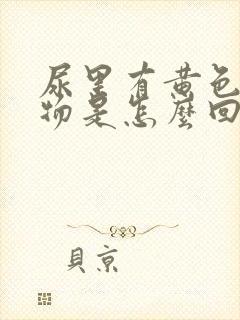 尿里有黄色
物是怎麼回
貝京